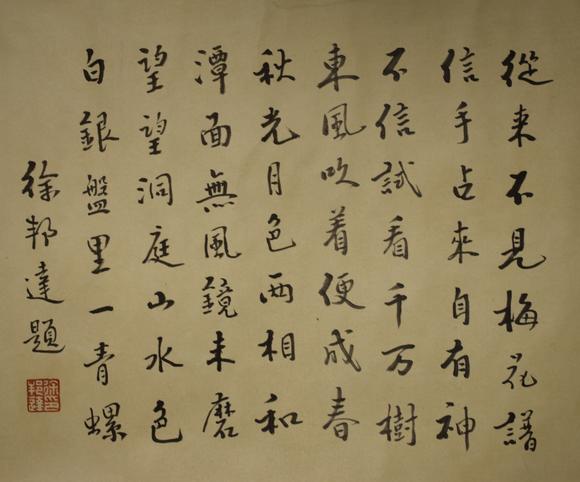 從来不見梅花譜
信手占來自有神
不信試看千万樹
東風吹着便成春
秋光月色两相和
潭面無風鏡未磨
望望洞庭山水色
白銀盤里一青螺
徐邦達題
徐邦達印